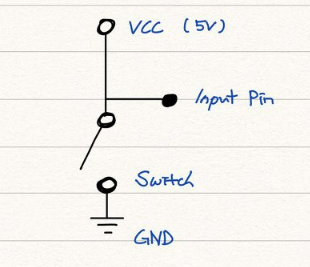 VCC (5V)
Input Pin
Switch
GND